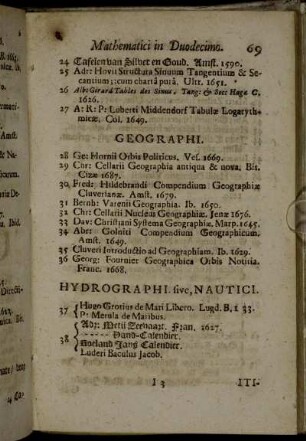 Mathematici in Duodecimo. 69
24 Tafelen van Silver en Goud. Amst. 1590.
25 Adr: Hovii Structura Sinuum Tangentium & Se-
cantium : cum chartâ purâ. Ultr. 1651.
26 Alb: Gerard Tables des Sinus, Tang: & Sec: Haga C.
1626.
27 A: R: P: Luberti Middendorf Tabulæ Logaryth-
micæ, Col. 1649.
GEOGRAPHI.
28 Ge: Hornii Orbis Politicus, Vef. 1669.
29 Chr: Cellarii Geographia antiqua & nova, Bit.
Cizæ 1687.
30 Fred: Hildebrandi Compendium Geographiæ
Cluverianæ. 1679.
31 Bernh: Varenii Geographia. Ib. 1650.
32 Chr: Cellarii Nucleus Geographiæ, Jenæ 1676.
33 Dav: Christiani Systema Geographia, Marp. 1645.
34 Abr: Golnits Compendium Geographicum.
Amst. 1649.
35 Cluveri Introductio ad Geographiam. Ib. 1629.
36 Georg: Fournier Geographica Orbis Notitia.
Franc. 1668.
HYDROGRAPHI. sive, NAUTICI.
37 Hugo Grotius de Mari Libero. Lugd. B, 1 33.
P: Merula de Maribus.
Adr: Metii Zeevaart. Fran. 1627.
---- Hand-Calendier.
38 Jans Calendier.
Luderi Baculus Jacob.
I 3 ITI-